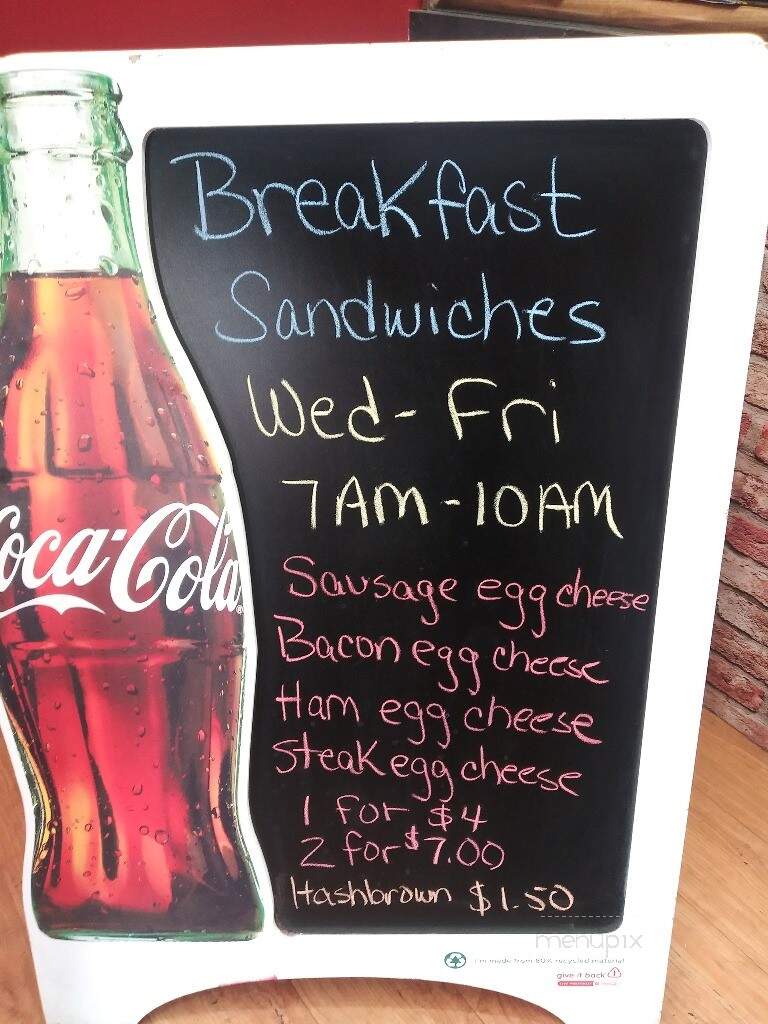 Breakfast
Sandwiches
Wed-Fri
7AM-10AM
Sausage egg cheese
Bacon egg cheese
Ham egg cheese
Steak egg cheese
1 for $4
2 for $7.00
Hashbrown $1.50
Coca-Cola
menupix
I'm made from 80% recycled material
give it back